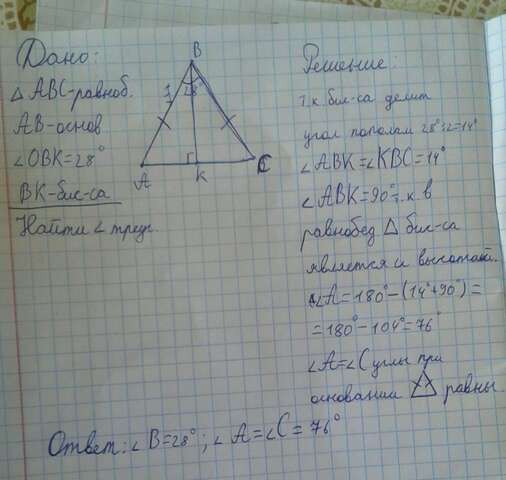 Дано:
△ ABC-равноб.
AB-основ
∠OBK=28°
BK-бис-са
Найти ∠ треуг.
B
28°
A
K
C
Решение:
т.к бис-са делит
угол пополам 28°:2=14°
∠ABK=∠KBC=14°
∠ABK=90° т.к. в
равнобед △ бис-са
является и высотой.
∠A=180°-(14°+90°)=
=180°-104°=76°
∠A=∠C углы при
основании △ равны.
Ответ: ∠B=28°; ∠A=∠C=76°